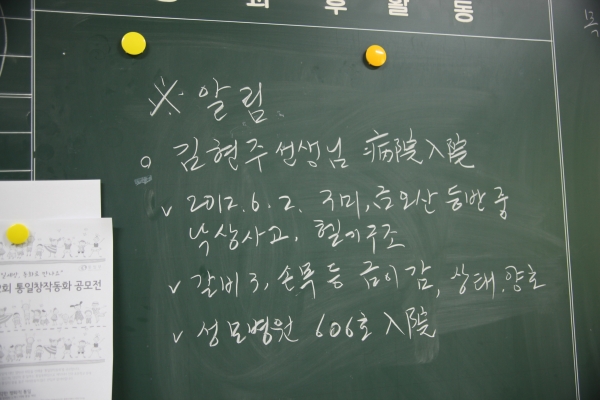 과 후 활 동
※ 알림
○ 김현주선생님 病院入院
✓ 2012. 6. 2. 구미, 금오산 등반 중
낙상사고, 헬기구조
✓ 갈비 3, 손목 등 금이 감, 상태, 양호
✓ 성모병원 606호 入院
통일창작동화 공모전